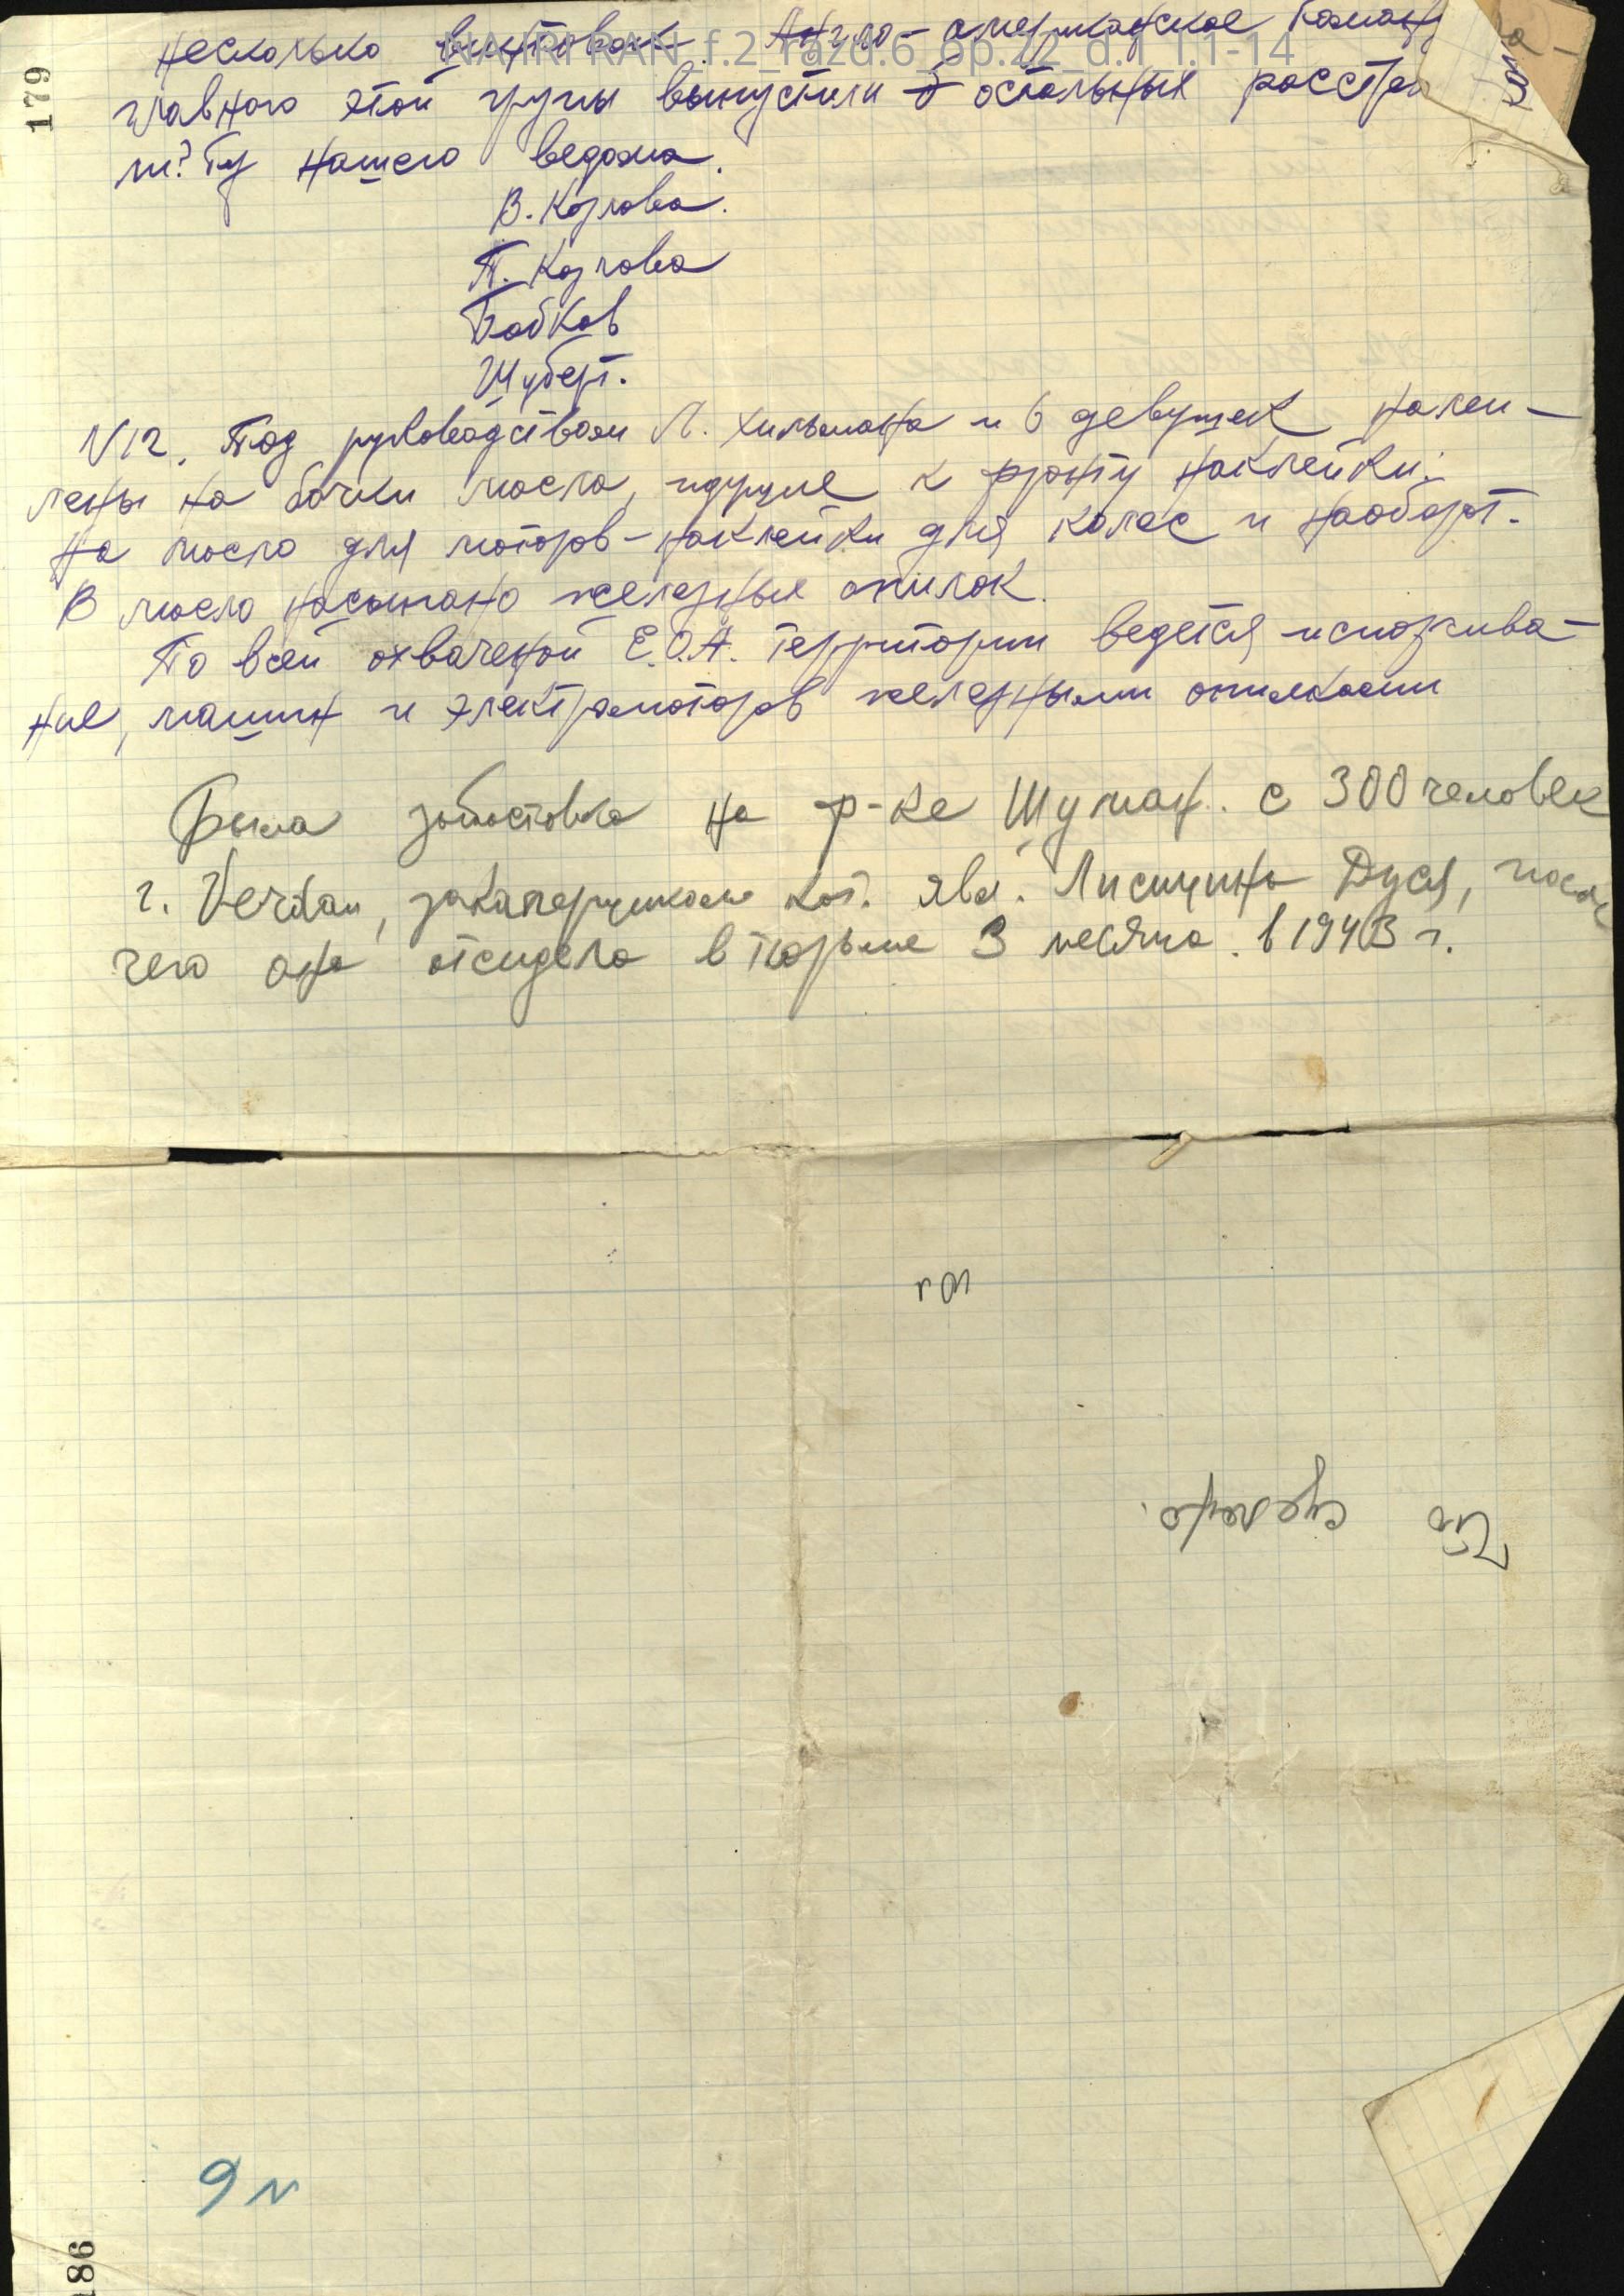 179
NA IRI RAN_f.2_razd.6_op.22_d.1_l.1-14
несколько винтовок. Англо-американское коман
главного этой групы выпустили а остальных расстре
ли? Без нашего ведома.
В. Козлова.
П. Козлова
Бобков
Шуберт.
N12. Под руководством Л. Хильмана и 6 девушек, накле-
лены на бочки масла, идущие к фронту наклейки:
На масло для моторов - наклейки для колес и наоборот.
В масло насыпано железных опилок.
По всей охваченой Е.О.А. територии ведется испорчива-
ние, машин и электромоторов железными опилками
Была забастовка на ф-ке Шуман. с 300 человек
г. Verdau, закаперщиком кот. явл. Лисицина Дуся, после
чего она отсидела в тюрьме 3 месяца. в 1943 г.
9 N
186